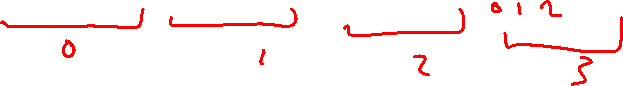 0 1 2
0 1 2 3